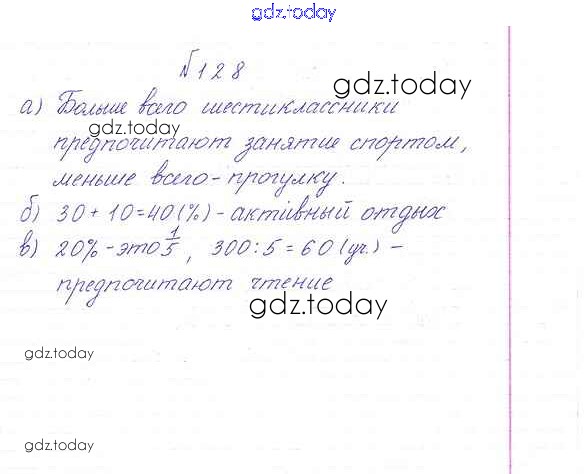 gdz.today
№128
gdz.today
а) Больше всего шестиклассники
gdz.today
предпочитают занятие спортом,
меньше всего - прогулку.
б) 30 + 10 = 40 (%) - активный отдых
в) 20% - это 1/5 , 300 : 5 = 60 (уч.) -
предпочитают чтение
gdz.today
gdz.today
gdz.today